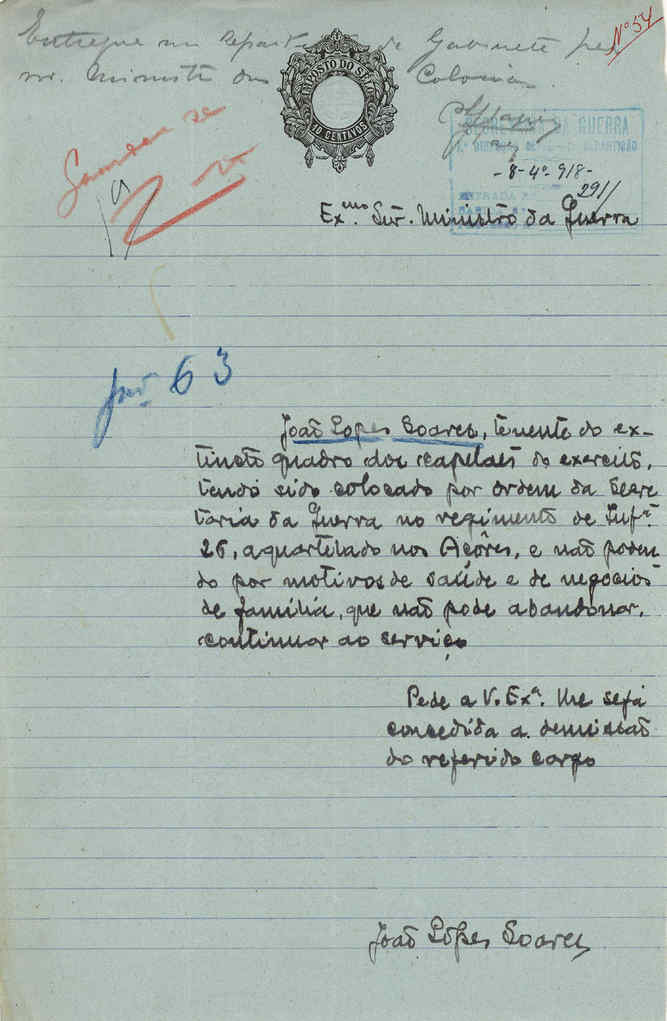 Nº 54
Entregue na Repartição do Gabinete pelo
sr. Ministro das Colonias
IMPOSTO DO SELO
10 CENTAVOS
SECRETARIA DA GUERRA
REPARTIÇÃO
-8-4º-918-
291
ENTRADA
Exmo. Snr. Ministro da Guerra
63
João Lopes Soares, tenente do ex-
tincto quadro dos capelães do exercito,
tendo sido colocado por ordem da Secre
taria da Guerra no regimento de Infª.
26, aquartelado nos Açôres, e não poden
do por motivos de saúde e de negocios
de familia, que não pode abandonar,
continuar ao serviço
Pede a V. Exª. lhe seja
concedida a demissão
do referido corpo
João Lopes Soares